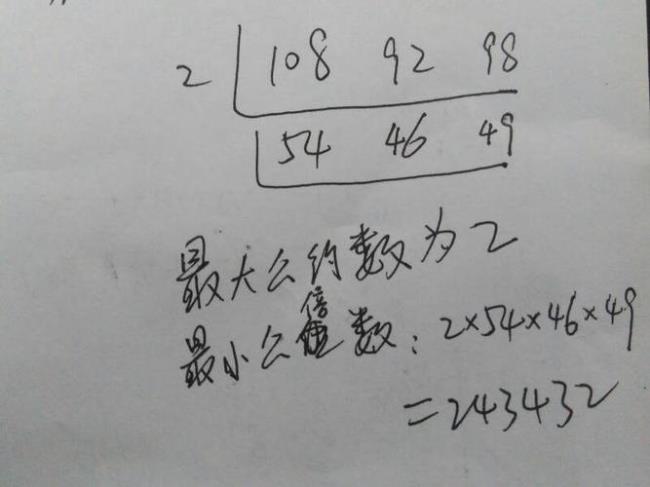 2 108 92 98
54 46 49
最大公约数为2
最小公倍数：2×54×46×49
=243432